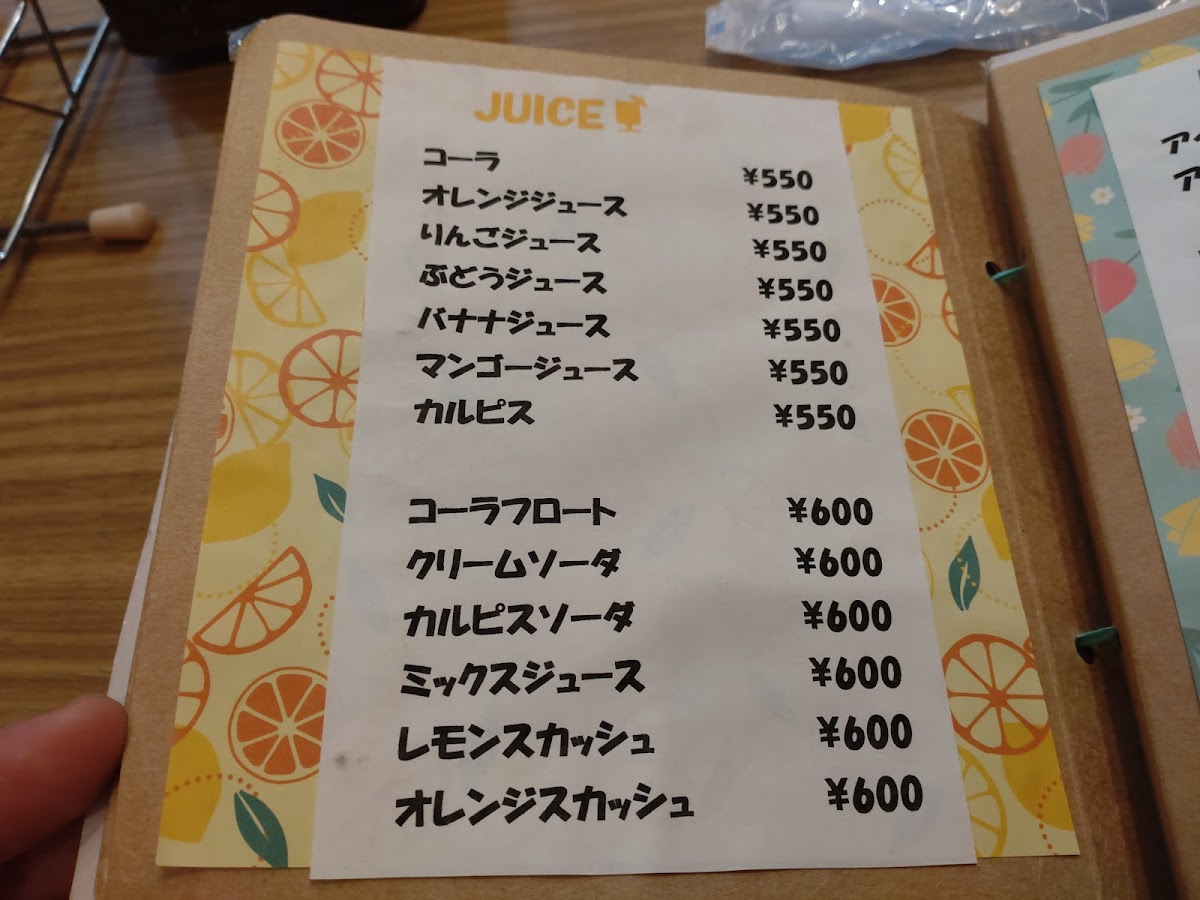 JUICE
コーラ ¥550
オレンジジュース ¥550
りんごジュース ¥550
ぶどうジュース ¥550
バナナジュース ¥550
マンゴージュース ¥550
カルピス ¥550
コーラフロート ¥600
クリームソーダ ¥600
カルピスソーダ ¥600
ミックスジュース ¥600
レモンスカッシュ ¥600
オレンジスカッシュ ¥600